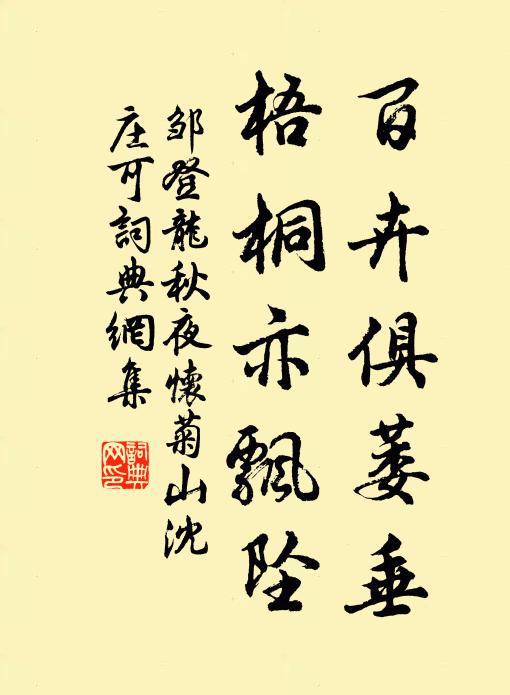 百卉俱萎垂
梧桐亦飄墜
邹登龍秋夜懷菊山沈
庄可詞典網集
詞典网印